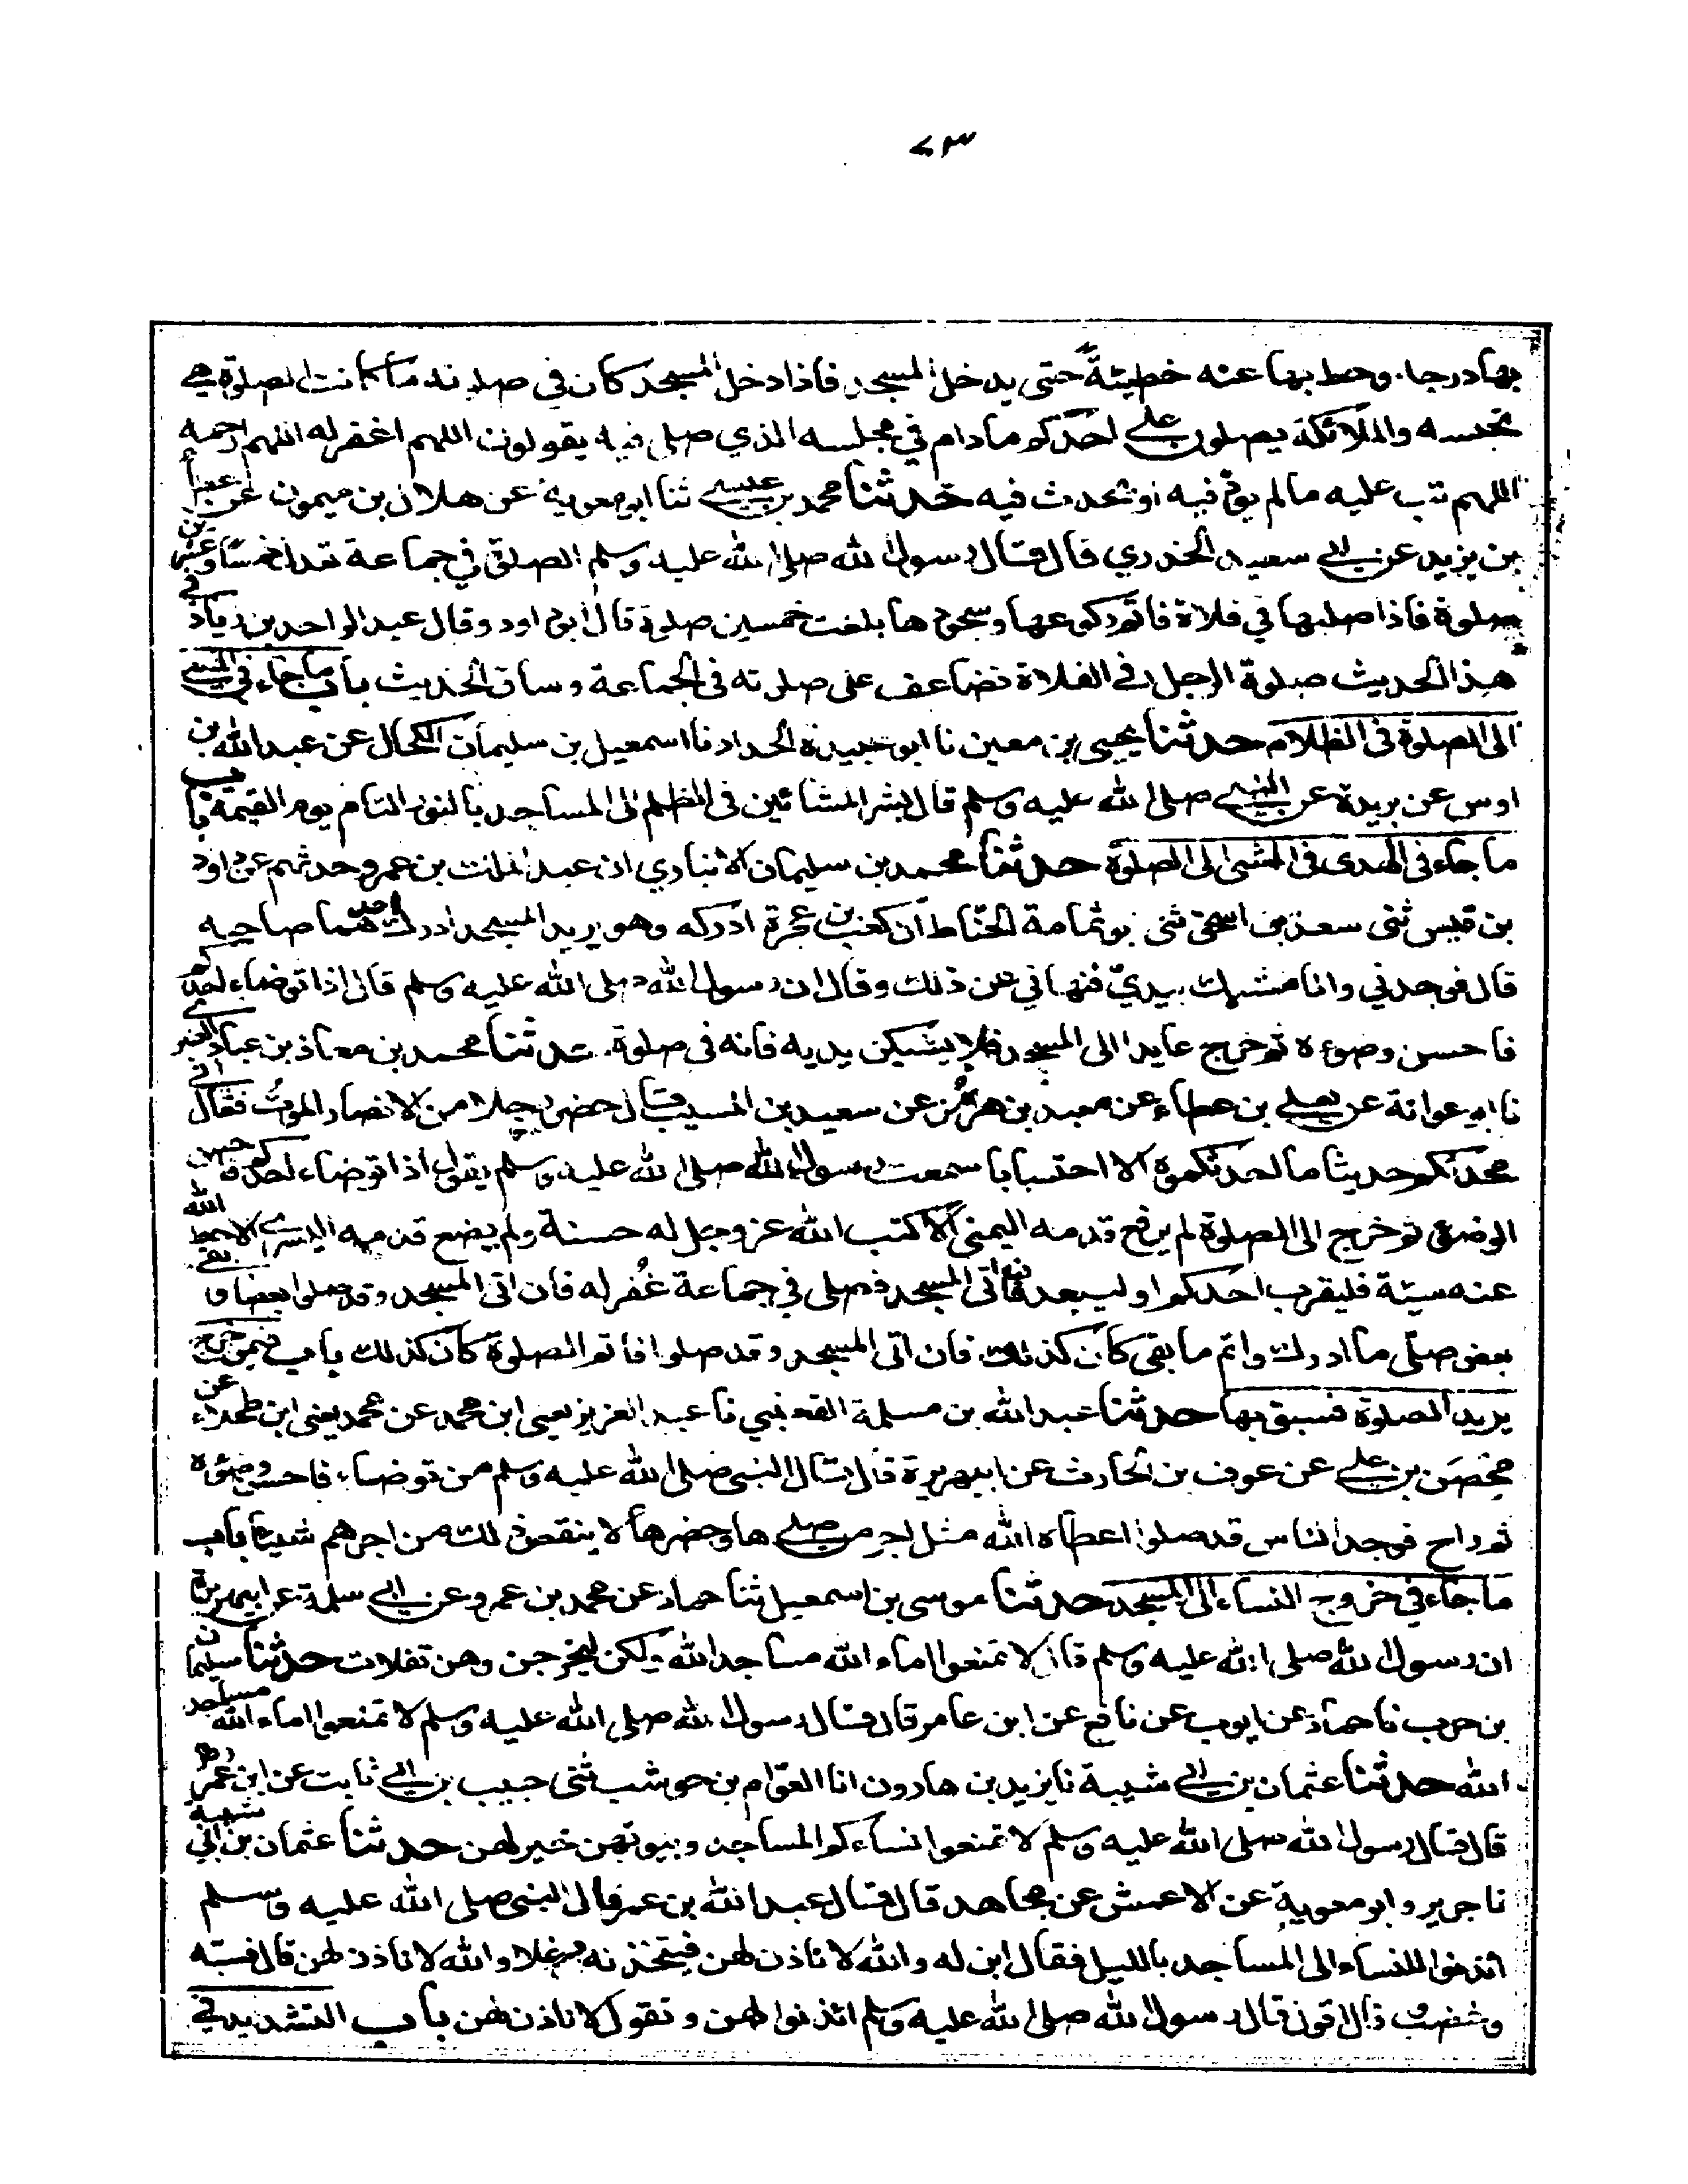 ٧٣
بها درجا وحط بها عنه خطيئة حتى يدخل المسجد فاذا دخل المسجد كان في صلوته ما كانت الصلوة هي
تحبسه والملائكة يصلون على احدكم ما دام في مجلسه الذي صلى فيه يقولون اللهم اغفر له اللهم ارحمه
اللهم تب عليه ما لم يوذ فيه او يحدث فيه حدثنا محمد بن عيسى ثنا ابو معوية عن هلال بن ميمون عن عطاء
بن يزيد عن ابي سعيد الخدري قال قال رسول الله صلى الله عليه وسلم الصلوة في جماعة تعدل خمسا وعشرين
صلوة فاذا صلىها في فلاة فاتم ركوعها وسجودها بلغت خمسين صلوة قال ابو داود وقال عبد الواحد بن زياد في
هذا الحديث صلوة الرجل في الفلاة تضاعف على صلوته في الجماعة وساق الحديث باب ما جاء في المشي
الى الصلوة في الظلام حدثنا يحيى بن معين نا ابو عبيدة الحداد نا اسمعيل بن سليمان الكحال عن عبد الله بن
اوس عن بريدة عن النبي صلى الله عليه وسلم قال بشر المشائين في الظلم الى المساجد بالنور التام يوم القيمة باب
ما جاء في الهدى في المشي الى الصلوة حدثنا محمد بن سليمان الانباري ان عبد الملك بن عمرو حدثهم عن داود
بن قيس ثنى سعد بن اسحق ثنى ابو ثمامة الحناط ان كعب بن عجرة ادركه وهو يريد المسجد ادرك احدهما صاحبه
قال فوجدني وانا مشبك بيدي فنهاني عن ذلك وقال ان رسول الله صلى الله عليه وسلم قال اذا توضاء احدكم
فاحسن وضوءه ثم خرج عامدا الى المسجد فلا يشبكن يديه فانه في صلوة حدثنا محمد بن معاذ بن عباد العنبري
نا ابو عوانة عن يعلى بن عطاء عن معبد بن هرمز عن سعيد بن المسيب قال حضر رجلا من الانصار الموت فقال اني
محدثكم حديثا ما احدثكموه الا احتسابا سمعت رسول الله صلى الله عليه وسلم يقول اذا توضاء احدكم فاحسن
الوضوء ثم خرج الى الصلوة لم يرفع قدمه اليمنى الا كتب الله عز وجل له حسنة ولم يضع قدمه اليسرى الا حط الله
عنه سيئة فليقرب احدكم او ليبعد فان اتى المسجد فصلى في جماعة غفر له فان اتى المسجد وقد صلوا بعضا وبقي
بعض صلى ما ادرك واتم ما بقي كان كذلك فان اتى المسجد وقد صلوا فاتم الصلوة كان كذلك باب فيمن خرج
يريد الصلوة فسبق بها حدثنا عبد الله بن مسلمة القعنبي نا عبد العزيز يعني ابن محمد عن محمد يعني ابن طحلاء عن
محصن بن علي عن عوف بن الحارث عن ابي هريرة قال قال النبي صلى الله عليه وسلم من توضاء فاحسن وضوءه
ثم راح فوجد الناس قد صلوا اعطاه الله مثل اجر من صلىها وحضرها لا ينقص ذلك من اجرهم شيئا باب
ما جاء في خروج النساء الى المسجد حدثنا موسى بن اسمعيل ثنا حماد عن محمد بن عمرو عن ابي سلمة عن ابي هريرة
ان رسول الله صلى الله عليه وسلم قال لا تمنعوا اماء الله مساجد الله ولكن ليخرجن وهن تفلات حدثنا سليمان
بن حرب نا حماد عن ايوب عن نافع عن ابن عامر قال قال رسول الله صلى الله عليه وسلم لا تمنعوا اماء الله مساجد
الله حدثنا عثمان بن ابي شيبة نا يزيد بن هارون انا العوام بن حوشب ثنى حبيب بن ابي ثابت عن ابن عمر
قال قال رسول الله صلى الله عليه وسلم لا تمنعوا نساءكم المساجد وبيوتهن خير لهن حدثنا عثمان بن ابي شيبة
نا جرير وابو معوية عن الاعمش عن مجاهد قال قال عبد الله بن عمر قال النبي صلى الله عليه وسلم
ائذنوا للنساء الى المساجد بالليل فقال ابن له والله لا ناذن لهن فيتخذنه دغلا والله لا ناذن لهن قال فسبه
وغضب قال اقول قال رسول الله صلى الله عليه وسلم ائذنوا لهن وتقول لا ناذن لهن باب التشديد في